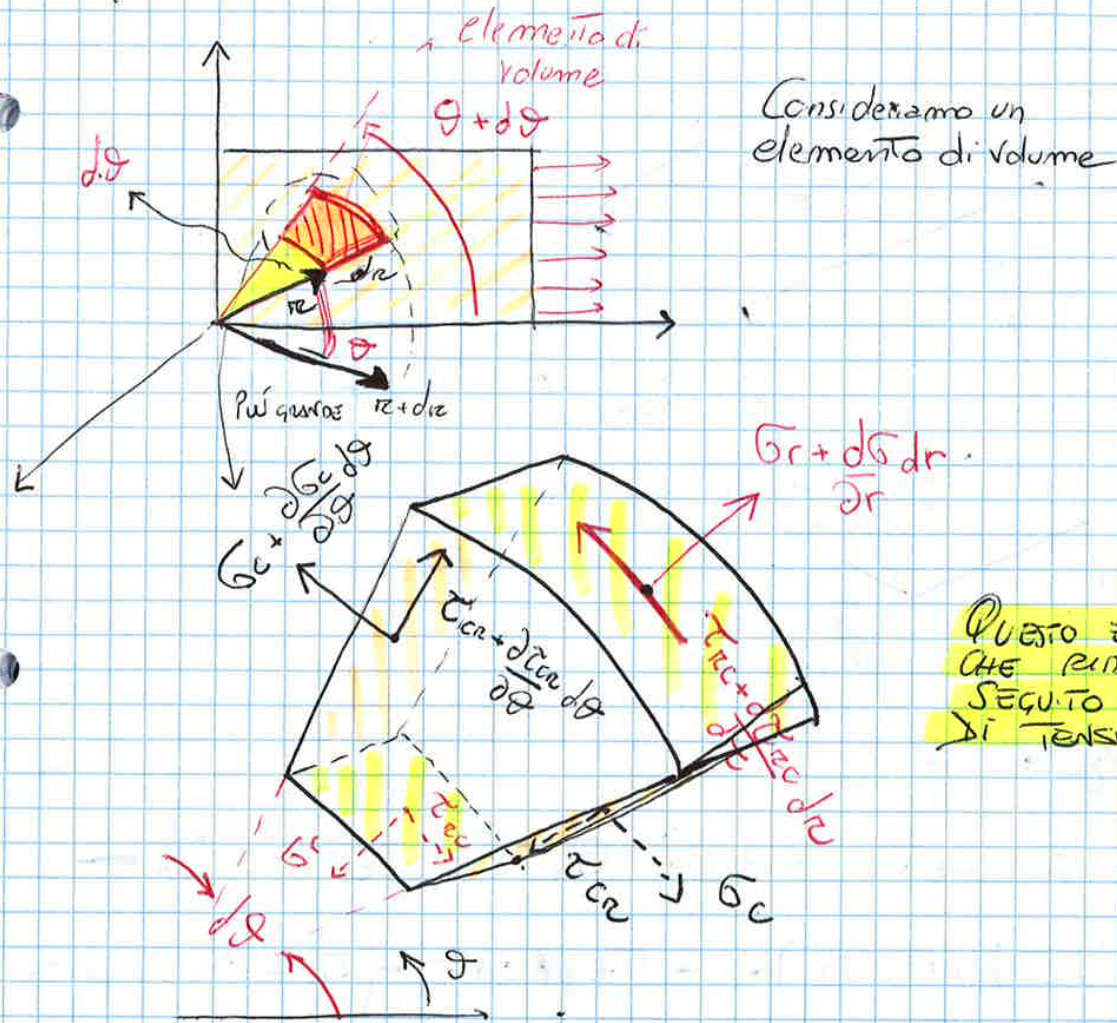 elemento di
volume
ϑ + dϑ
Consideriamo un
elemento di volume
dϑ
dr
r
ϑ
Più GRANDE r+dr
σr + dσ/∂r dr
σc + ∂σc/∂ϑ dϑ
τcr + ∂τcr/∂ϑ dϑ
τrc + dτrc/dr dr
QUESTO È
CHE
SEGUITO
DI TENS
σr
τrc
τcr
σc
dϑ
ϑ